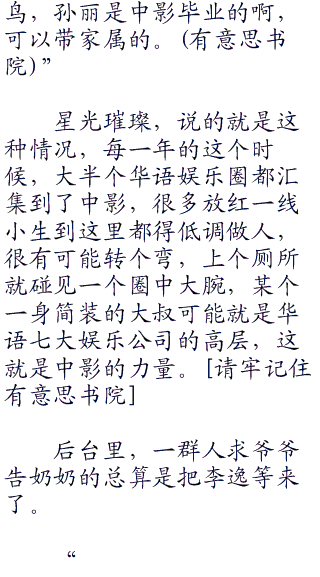 鸟，孙丽是中影毕业的啊，
可以带家属的。(有意思书
院)”
星光璀璨，说的就是这
种情况，每一年的这个时
候，大半个华语娱乐圈都汇
集到了中影，很多放红一线
小生到这里都得低调做人，
很有可能转个弯，上个厕所
就碰见一个圈中大腕，某个
一身简装的大叔可能就是华
语七大娱乐公司的高层，这
就是中影的力量。[请牢记住
有意思书院]
后台里，一群人求爷爷
告奶奶的总算是把李逸等来
了。
“